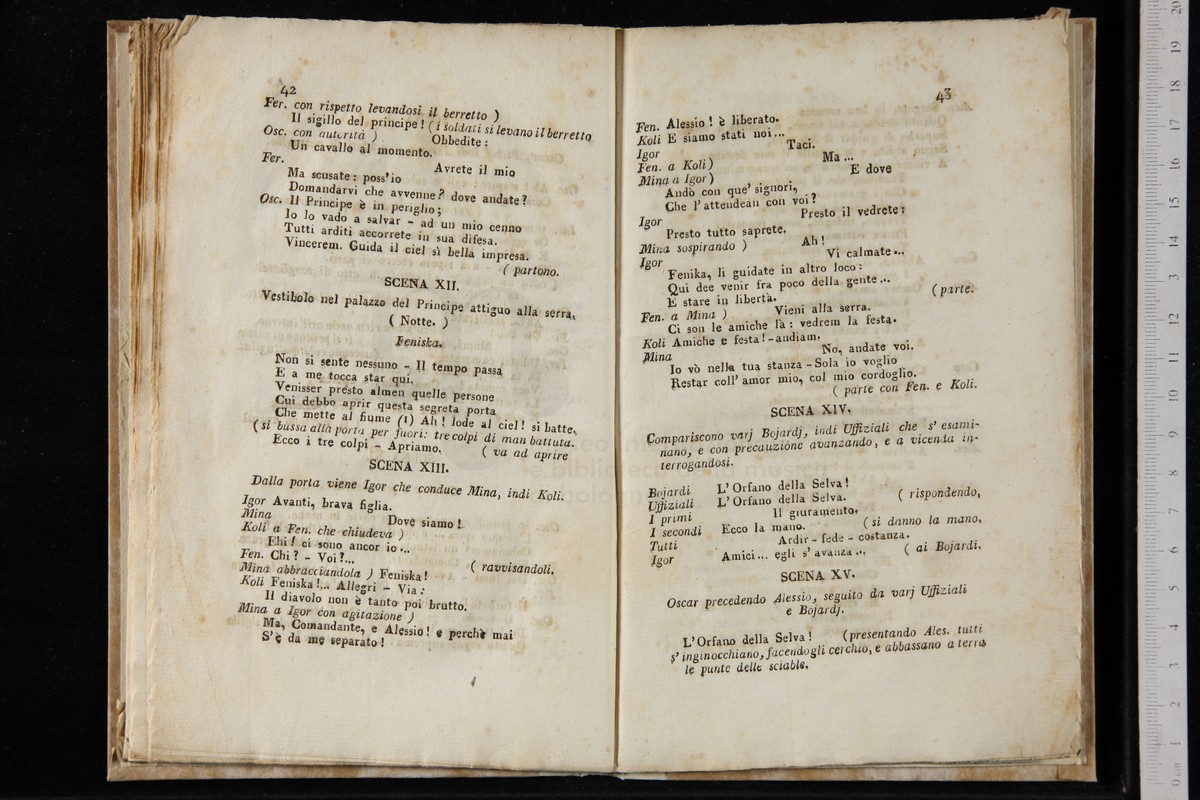 42
Fer. con rispetto levandosi il berretto )
Il sigillo del principe! ( i soldati si levano il berretto
Osc. con autorità ) Obbedite:
Un cavallo al momento.
Fer. Avrete il mio
Ma scusate: poss'io
Domandarvi che avvenne? dove andate?
Osc. Il Principe è in periglio;
Io lo vado a salvar - ad un mio cenno
Tutti arditi accorrete in sua difesa.
Vincerem. Guida il ciel sì bella impresa.
( partono.
SCENA XII.
Vestibolo nel palazzo del Principe attiguo alla serra.
( Notte. )
Feniska.
Non si sente nessuno - Il tempo passa
E a me tocca star qui.
Venisser presto almen quelle persone
Cui debbo aprir questa segreta porta
Che mette al fiume (1) Ah! lode al ciel! si batte.
( si bussa alla porta per fuori: tre colpi di man battuta.
Ecco i tre colpi - Apriamo. ( va ad aprire
SCENA XIII.
Dalla porta viene Igor che conduce Mina, indi Koli.
Igor Avanti, brava figlia.
Mina Dove siamo!
Koli a Fen. che chiudeva )
Ehi! ci sono ancor io...
Fen. Chi? - Voi?... ( ravvisandoli.
Mina abbracciandola ) Feniska!
Koli Feniska!... Allegri - Via:
Il diavolo non è tanto poi brutto.
Mina a Igor con agitazione )
Ma, Comandante, e Alessio! e perchè mai
S'è da me separato!
43
Fen. Alessio! è liberato.
Koli E siamo stati noi...
Igor Taci.
Fen. a Koli) Ma...
Mina a Igor) E dove
Andò con que' signori,
Che l'attendean con voi?
Igor Presto il vedrete;
Presto tutto saprete.
Mina sospirando ) Ah!
Igor Vi calmate...
Fenika, li guidate in altro loco:
Qui dee venir fra poco della gente...
E stare in libertà. (parte.
Fen. a Mina ) Vieni alla serra.
Ci son le amiche là: vedrem la festa.
Koli Amiche e festa! - andiam.
Mina No, andate voi.
Io vò nella tua stanza - Sola io voglio
Restar coll' amor mio, col mio cordoglio.
( parte con Fen. e Koli.
SCENA XIV.
Compariscono varj Bojardj, indi Uffiziali che s' esami-
nano, e con precauzione avanzando, e a vicenda in-
terrogandosi.
Bojardi L'Orfano della Selva!
Uffiziali L'Orfano della Selva. ( rispondendo,
I primi Il giuramento.
I secondi Ecco la mano. ( si danno la mano.
Tutti Ardir - fede - costanza.
Igor Amici... egli s' avanza... ( ai Bojardi.
SCENA XV.
Oscar precedendo Alessio, seguito da varj Uffiziali
e Bojardj.
L'Orfano della Selva! (presentando Ales. tutti
s' inginocchiano, facendogli cerchio, e abbassano a terra
le punte delle sciable.